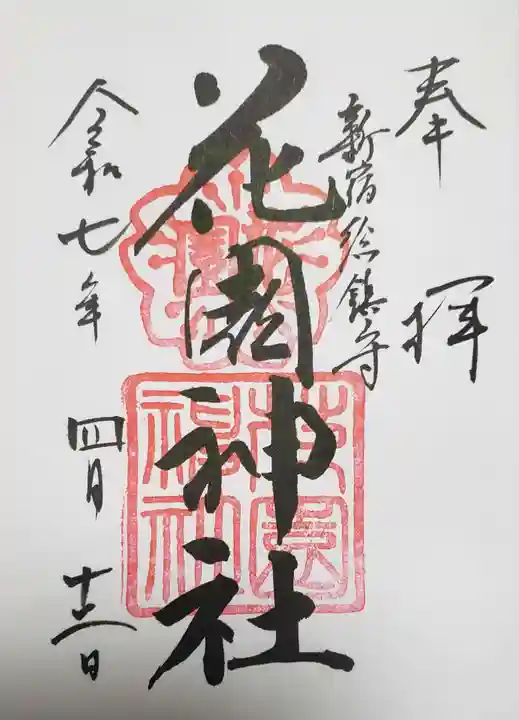 奉拝
新宿総鎮守
花園神社
花園
神社
令和七年四月十日